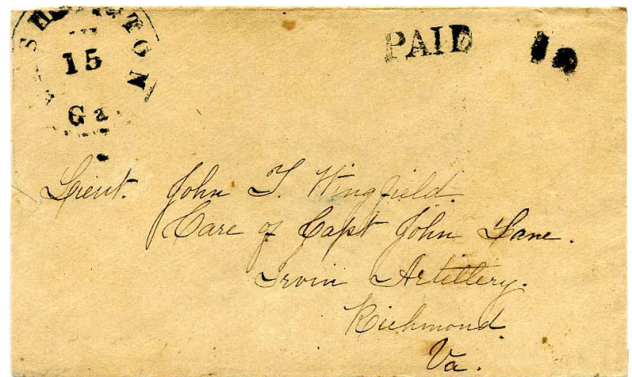 SHINGTON
15
Ga
PAID 10
Lieut. John T. Wingfield.
Care of Capt John Lane.
Irvin Artillery.
Richmond
Va.